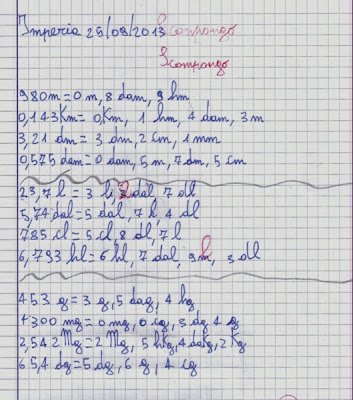 Imperia 25/09/2013 Scompongo
Scompongo
980m=0 m, 8 dam, 9 hm
0,143Km=0,Km, 1 hm, 4 dam, 3 m
3,21 dm=3 dm, 2 cm, 1 mm
0,575 dam=0 dam, 5 m, 7 dm, 5 cm
23,7 l=3 l, 2 dal, 7 dl
5,74 dal=5 dal, 7 l, 4 dl
785 cl=5 cl, 8 dl, 7 l
6,793 hl=6 hl, 7 dal, 9 l, 3 dl
453 g=3 g, 5 dag, 4 hg
4300 mg=0 mg, 0 cg, 3 dg 4 g
2,542 Mg=2 Mg, 5 hKg, 4 daKg, 2 Kg
65,4 dg=5 dg, 6 g, 4 cg